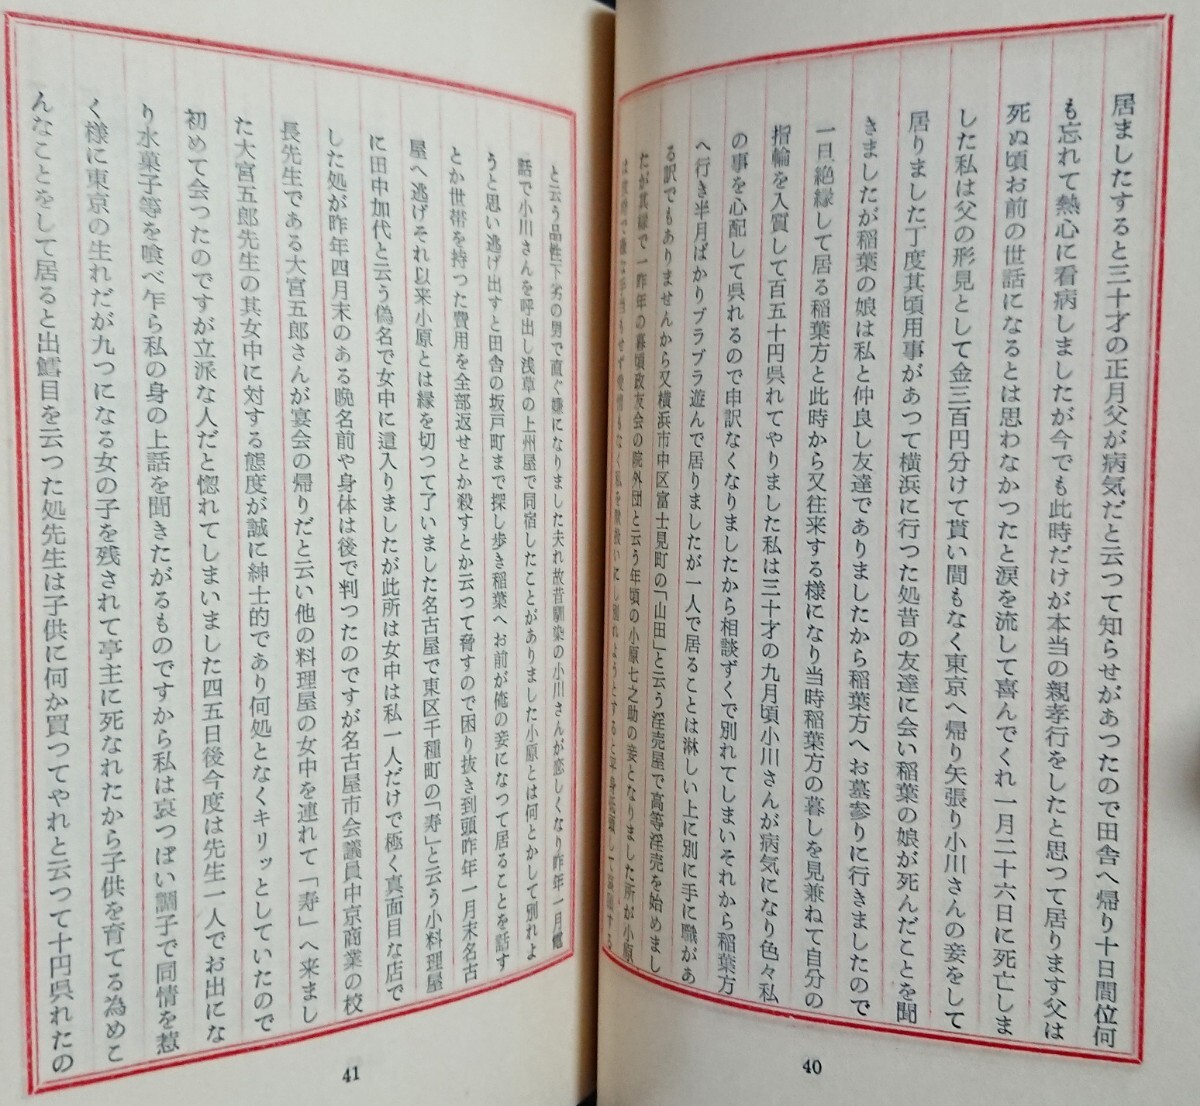 居ましたすると三十才の正月父が病気だと云つて知らせがあつたので田舎へ帰り十日間位何
も忘れて熱心に看病しましたが今でも此時だけが本当の親孝行をしたと思つて居ります父は
死ぬ頃お前の世話になるとは思わなかつたと涙を流して喜んでくれ一月二十六日に死亡しま
した私は父の形見として金三百円分けて貰い間もなく東京へ帰り矢張り小川さんの妾をして
居りました丁度其頃用事があつて横浜に行つた処昔の友達に会い稲葉の娘が死んだことを聞
きましたが稲葉の娘は私と仲良し友達でありましたから稲葉方へお墓参りに行きましたので
一旦絶縁して居る稲葉方と此時から又往来する様になり当時稲葉方の暮しを見兼ねて自分の
指輪を入質して百五十円呉れてやりました私は三十才の九月頃小川さんが病気になり色々私
の事を心配して呉れるので申訳なくなりましたから相談ずくで別れてしまいそれから稲葉方
へ行き半月ばかりブラブラ遊んで居りましたが一人で居ることは淋しい上に別に手に職があ
る訳でもありませんから又横浜市中区富士見町の「山田」と云う淫売屋で高等淫売を始めまし
たが其縁で一昨年の暮頃政友会の院外団と云う年頃の小原七之助の妾となりました所が小原
と云う品性下劣の男で直ぐ嫌になりました夫れ故昔馴染の小川さんが恋しくなり昨年一月電
話で小川さんを呼出し浅草の上州屋で同宿したことがありました小原とは何とかして別れよ
うと思い逃げ出すと田舎の坂戸町まで探し歩き稲葉へお前が俺の妾になつて居ることを話す
とか世帯を持つた費用を全部返せとか殺すとか云つて脅すので困り抜き到頭昨年一月末名古
屋へ逃げそれ以来小原とは縁を切つて了いました名古屋で東区千種町の「寿」と云う小料理屋
に田中加代と云う偽名で女中に這入りましたが此所は女中は私一人だけで極く真面目な店で
した処が昨年四月末のある晩名前や身体は後で判つたのですが名古屋市会議員中京商業の校
長先生である大宮五郎さんが宴会の帰りだと云い他の料理屋の女中を連れて「寿」へ来まし
た大宮五郎先生の其女中に対する態度が誠に紳士的であり何処となくキリッとしていたので
初めて会つたのですが立派な人だと惚れてしまいました四五日後今度は先生一人でお出にな
り水菓子等を喰べ乍ら私の身の上話を聞きたがるものですから私は哀つぽい調子で同情を惹
く様に東京の生れだが九つになる女の子を残されて亭主に死なれたから子供を育てる為めこ
んなことをして居ると出鱈目を云つた処先生は子供に何か買つてやれと云つて十円呉れたの
40
41